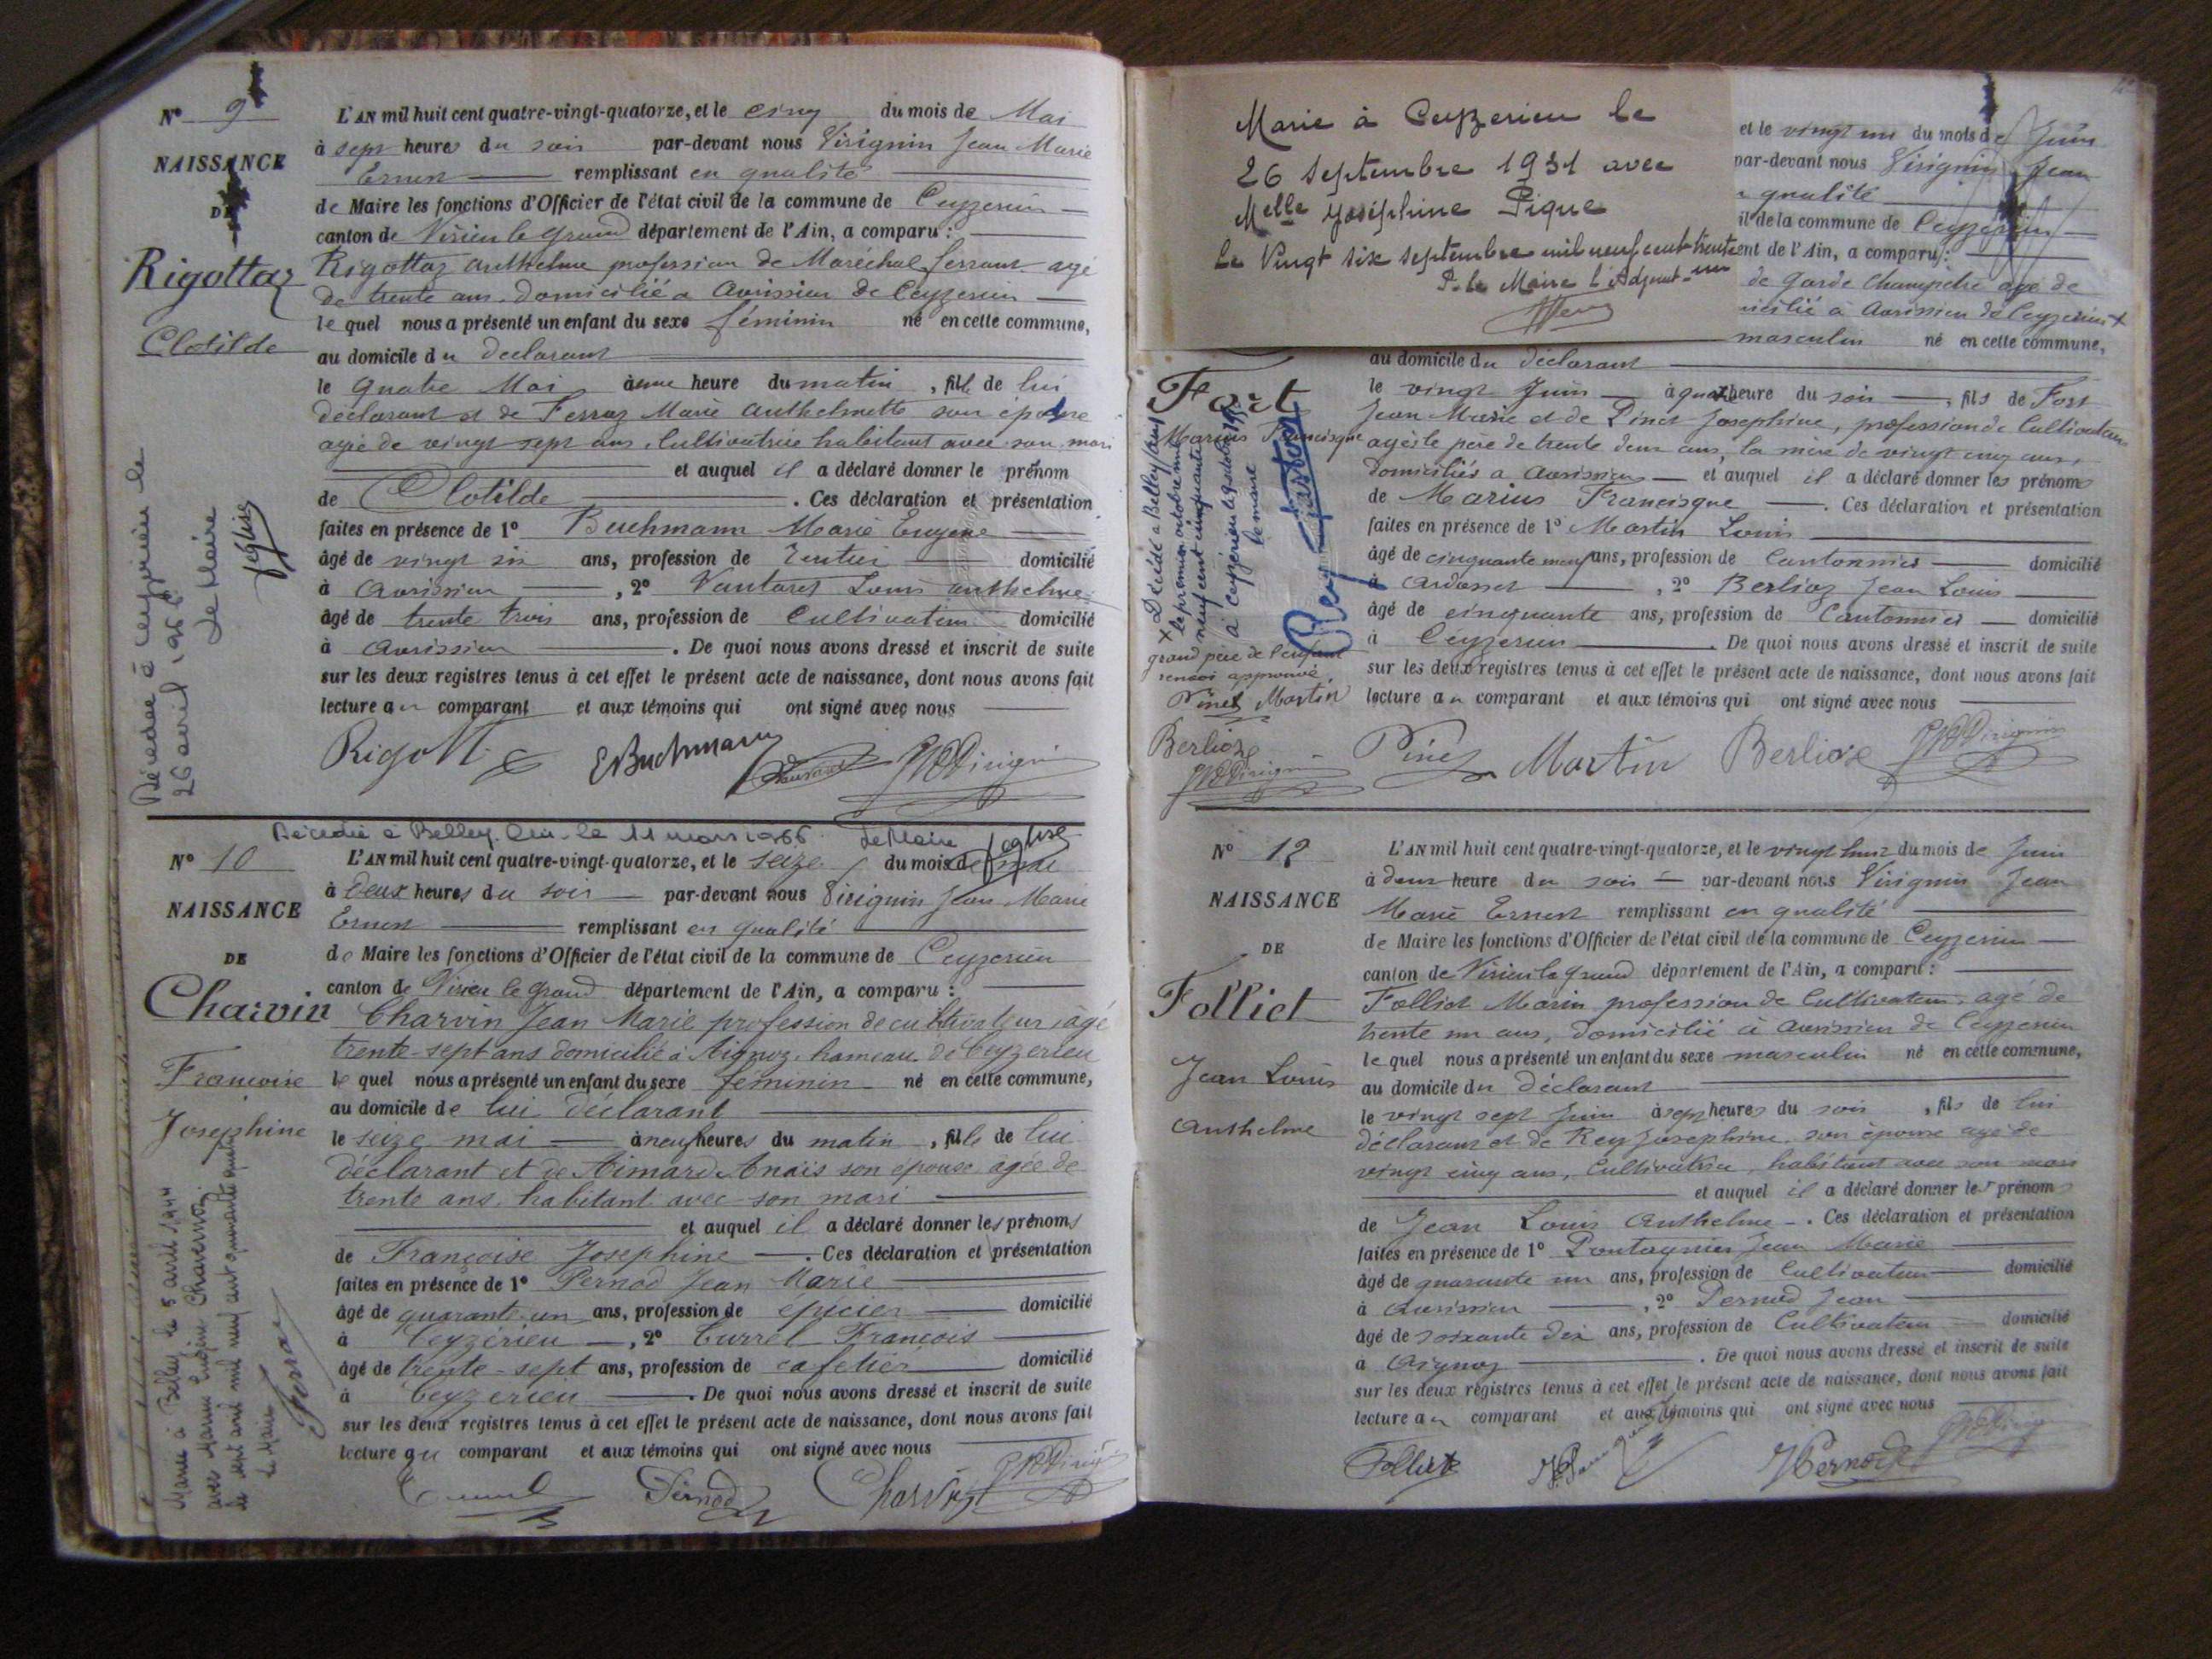 N° 9
NAISSANCE
DE
Rigottaz
Clotilde
Décédée à Ceyzérieu le
26 avril 1966
Le Maire
L'AN mil huit cent quatre-vingt-quatorze, et le cinq du mois de Mai
à sept heures du soir par-devant nous Virignin Jean Marie
Ernest remplissant en qualité
de Maire les fonctions d'Officier de l'état civil de la commune de Ceyzerieu
canton de Virieu le Grand département de l'Ain, a comparu :
Rigottaz Anthelme profession de Maréchal ferrant agé
de trente ans domicilié à Avrissieu de Ceyzerieu
le quel nous a présenté un enfant du sexe féminin né en cette commune,
au domicile du declarant
le quatre Mai à une heure du matin, fille de lui
déclarant et de Ferraz Marie Anthelmette son épouse
agée de vingt sept ans, Cultivatrice habitant avec son mari
et auquel il a déclaré donner le prénom
de Clotilde. Ces déclaration et présentation
faites en présence de 1° Buchmann Marie Eugene
âgé de vingt six ans, profession de rentier domicilié
à Avrissieu, 2° Vautaret Louis Anthelme
âgé de trente trois ans, profession de Cultivateur domicilié
à Avrissieu. De quoi nous avons dressé et inscrit de suite
sur les deux registres tenus à cet effet le présent acte de naissance, dont nous avons fait
lecture au comparant et aux témoins qui ont signé avec nous
Rigott EBuchmann
Décédée à Belley Ain le 11 mars 1966 Le Maire
N° 10
NAISSANCE
DE
Charvin
Francoise
Josephine
Mariée à Belley le 5 avril 1944
avec Marin Eugène Charernoz
Le Maire
L'AN mil huit cent quatre-vingt-quatorze, et le seize du mois de mai
à deux heures du soir par-devant nous Virignin Jean Marie
Ernest remplissant en qualité
de Maire les fonctions d'Officier de l'état civil de la commune de Ceyzerieu
canton de Virieu le Grand département de l'Ain, a comparu :
Charvin Jean Marie profession de cultivateur, âgé
trente-sept ans domicilié à Aignoz, hameau de Ceyzerieu
le quel nous a présenté un enfant du sexe feminin né en cette commune,
au domicile de lui déclarant
le seize mai à neuf heures du matin, fille de lui
déclarant et de Aimard Anaïs son épouse, âgée de
trente ans, habitant avec son mari
et auquel il a déclaré donner les prénoms
de Françoise Josephine. Ces déclaration et présentation
faites en présence de 1° Pernod Jean Marie
âgé de quarante un ans, profession de epicier domicilié
à Ceyzérieu, 2° Currel François
âgé de trente-sept ans, profession de cafetier domicilié
à Ceyzerieu. De quoi nous avons dressé et inscrit de suite
sur les deux registres tenus à cet effet le présent acte de naissance, dont nous avons fait
lecture au comparant et aux témoins qui ont signé avec nous
Pernod Charvin
Marié à Ceyzerieu le
26 Septembre 1931 avec
Melle Joséphine Pique
Le Vingt six septembre mil neuf cent trente
un
P. le Maire l'Adjoint
et le vingt un du mois de Juin
par-devant nous Virignin Jean
qualité
il de la commune de Ceyzerieu
ent de l'Ain, a comparu :
de garde champetre agé de
icilié à Avrissieu de Ceyzerieu +
masculin né en cette commune,
Fort
Marius Francisque
+ Décédé à Belley (Ain)
le premier octobre mil
neuf cent cinquante
à Ceyzérieu
le maire
grand père de l'enfant
renvoi approuvé
Pinet Martin
Berlioz
au domicile du déclarant
le vingt Juin à quatre heure du soir, fils de Fort
Jean Marie et de Pinet Josephine, profession de Cultivateurs
agés le père de trente deux ans, la mère de vingt cinq ans,
domiciliés à Avrissieu et auquel il a déclaré donner les prénoms
de Marius Francisque. Ces déclaration et présentation
faites en présence de 1° Martin Louis
âgé de cinquante neuf ans, profession de Cantonnier domicilié
à Ardosset, 2° Berlioz Jean Louis
âgé de cinquante ans, profession de Cantonnier domicilié
à Ceyzerieu. De quoi nous avons dressé et inscrit de suite
sur les deux registres tenus à cet effet le présent acte de naissance, dont nous avons fait
lecture au comparant et aux témoins qui ont signé avec nous
Pinet Martin Berlioz
N° 12
NAISSANCE
DE
Folliet
Jean Louis
Anthelme
L'AN mil huit cent quatre-vingt-quatorze, et le vingt huit du mois de Juin
à deux heure du soir par-devant nous Virignin Jean
Marie Ernest remplissant en qualité
de Maire les fonctions d'Officier de l'état civil de la commune de Ceyzerieu
canton de Virieu le Grand département de l'Ain, a comparu :
Folliet Marin profession de Cultivateur, agé de
trente un ans, domicilié à Avrissieu de Ceyzerieu
le quel nous a présenté un enfant du sexe masculin né en cette commune,
au domicile du déclarant
le vingt sept Juin à sept heures du soir, fils de lui
déclarant et de Rey Josephine, son épouse agé de
vingt cinq ans, Cultivatrice, habitant avec son mari
et auquel il a déclaré donner les prénoms
de Jean Louis Anthelme. Ces déclaration et présentation
faites en présence de 1° Pontagnier Jean Marie
âgé de quarante un ans, profession de Cultivateur domicilié
à Avrissieu, 2° Pernod Jean
âgé de soixante dix ans, profession de Cultivateur domicilié
à Aignoz. De quoi nous avons dressé et inscrit de suite
sur les deux registres tenus à cet effet le présent acte de naissance, dont nous avons fait
lecture au comparant et aux témoins qui ont signé avec nous
Folliet JPernod